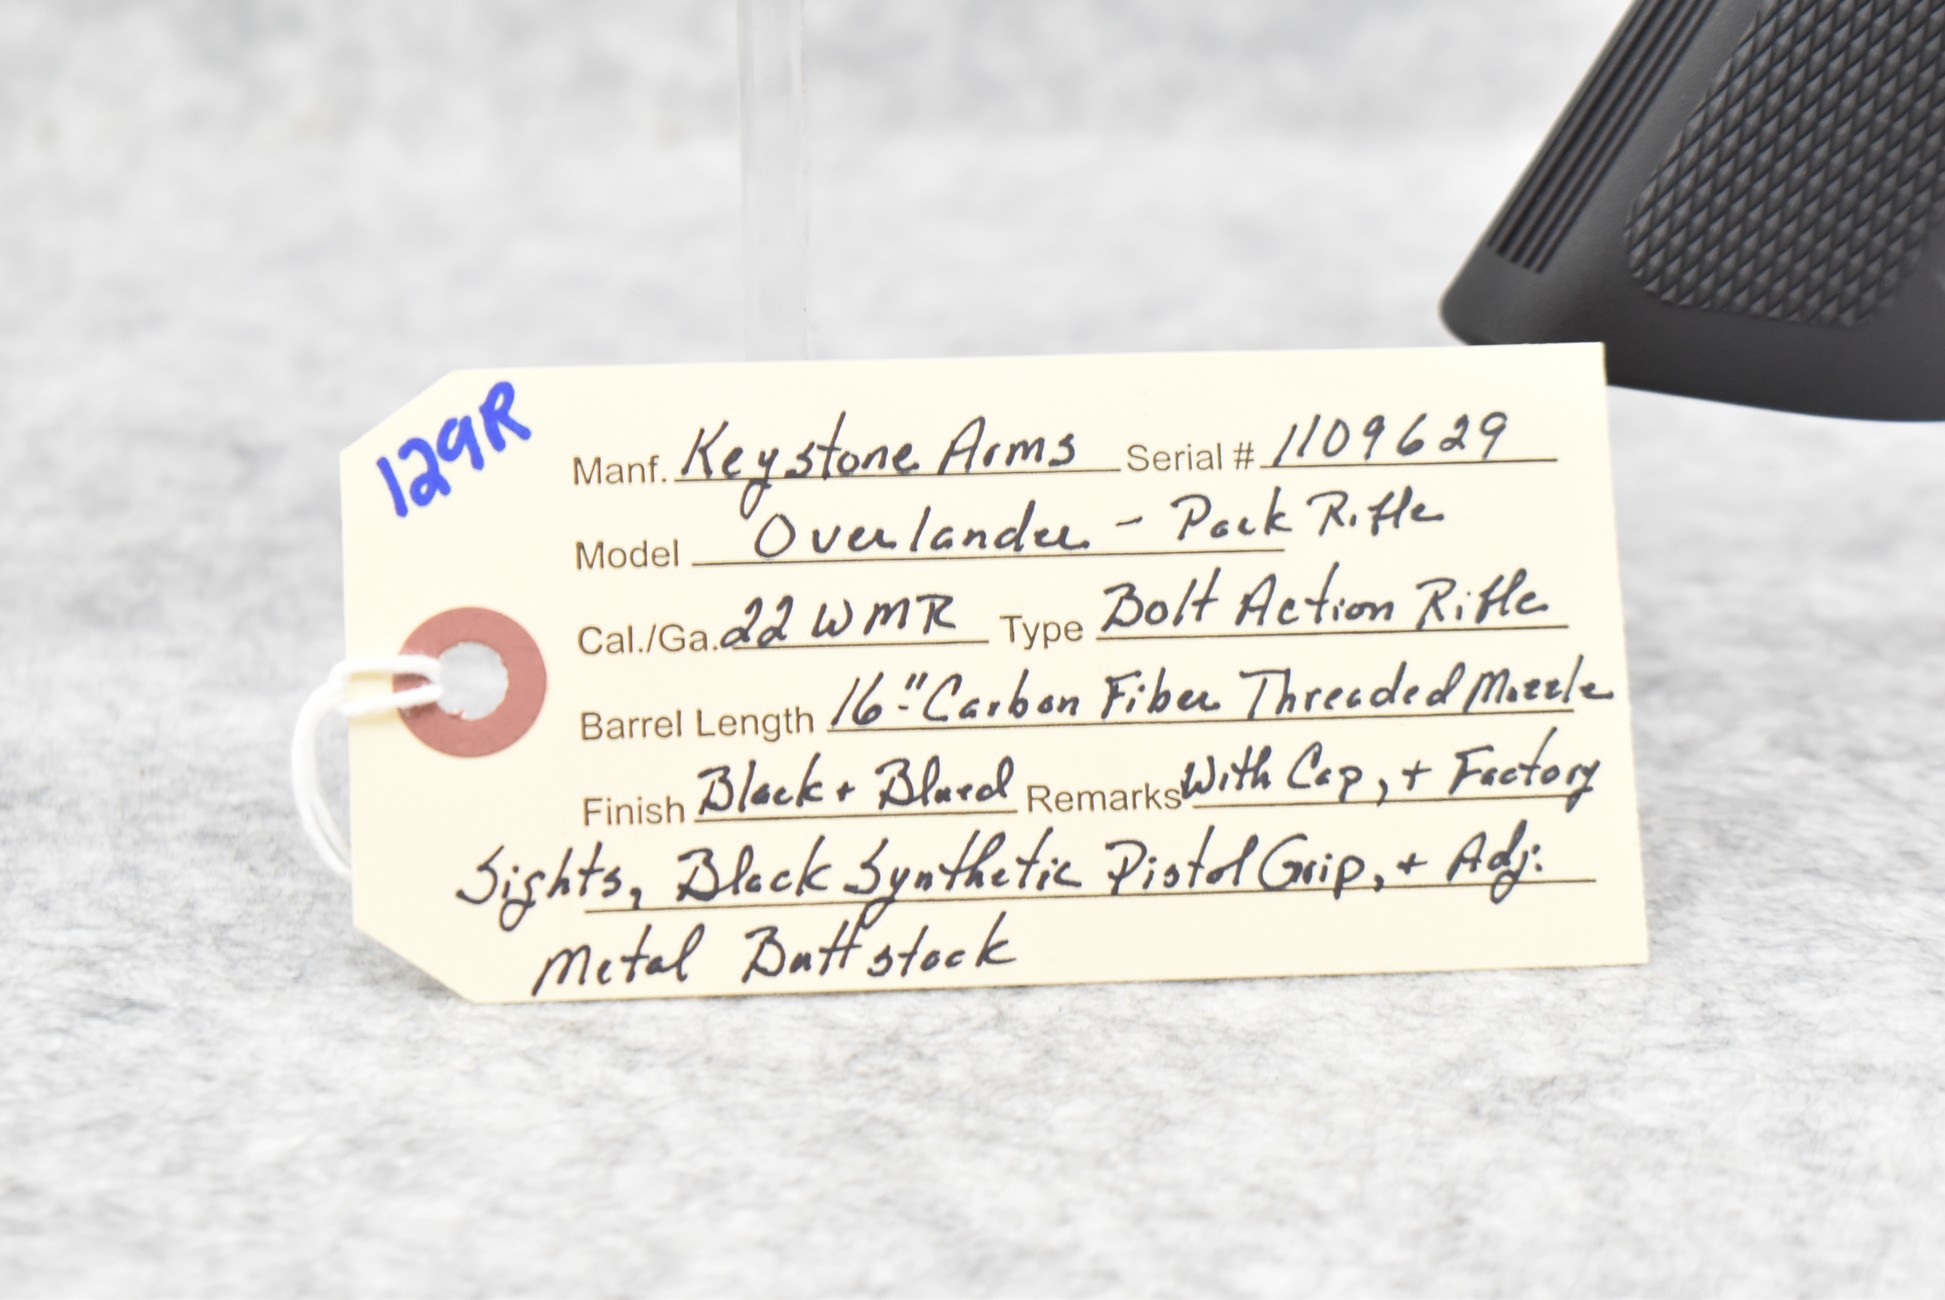 129R
Manf. Keystone Arms Serial # 1109629
Model Overlander - Pack Rifle
Cal./Ga. 22 WMR Type Bolt Action Rifle
Barrel Length 16"- Carbon Fiber Threaded Muzzle
Finish Black + Blued Remarks With Cap, + Factory
Sights, Black Synthetic Pistol Grip, + Adj.
Metal Buttstock